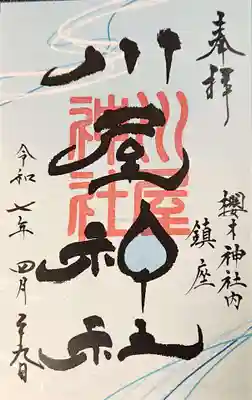 奉拝
櫻木神社内
鎮座
川屋神社
川屋
神社
令和七年 四月二十九日